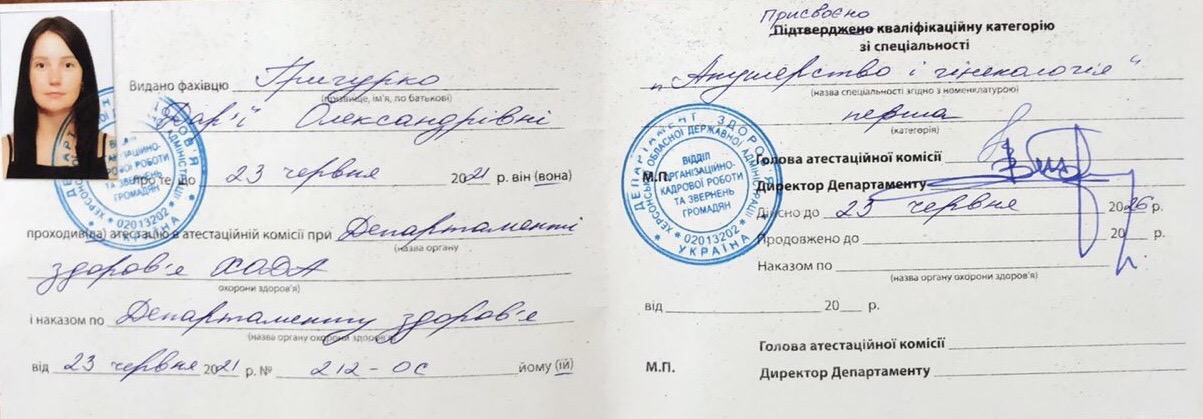 Видано фахівцю Григурко
(прізвище, ім'я, по батькові)
Дар'ї Олександрівні
про те, що 23 червня 2021 р. він (вона)
проходив(ла) атестацію в атестаційній комісії при Департаменті
(назва органу
здоров'я ХОДА
охорони здоров'я)
і наказом по Департаменту здоров'я
(назва органу охорони здоров'я)
від 23 червня 2021 р. № 212-ос йому (їй)
Присвоєно
Підтверджено кваліфікаційну категорію
зі спеціальності
"Акушерство і гінекологія"
(назва спеціальності згідно з номенклатурою)
перша
(категорія)
Голова атестаційної комісії
М.П.
Директор Департаменту
Дійсно до 23 червня 2026 р.
Продовжено до 20 р.
Наказом по
(назва органу охорони здоров'я)
від 20 р.
Голова атестаційної комісії
М.П.
Директор Департаменту
ДЕПАРТАМЕНТ ЗДОРОВ'Я
ХЕРСОНСЬКОЇ ОБЛАСНОЇ ДЕРЖАВНОЇ АДМІНІСТРАЦІЇ
ВІДДІЛ
ОРГАНІЗАЦІЙНО-
КАДРОВОЇ РОБОТИ
ТА ЗВЕРНЕНЬ
ГРОМАДЯН
* 02013202 *
УКРАЇНА